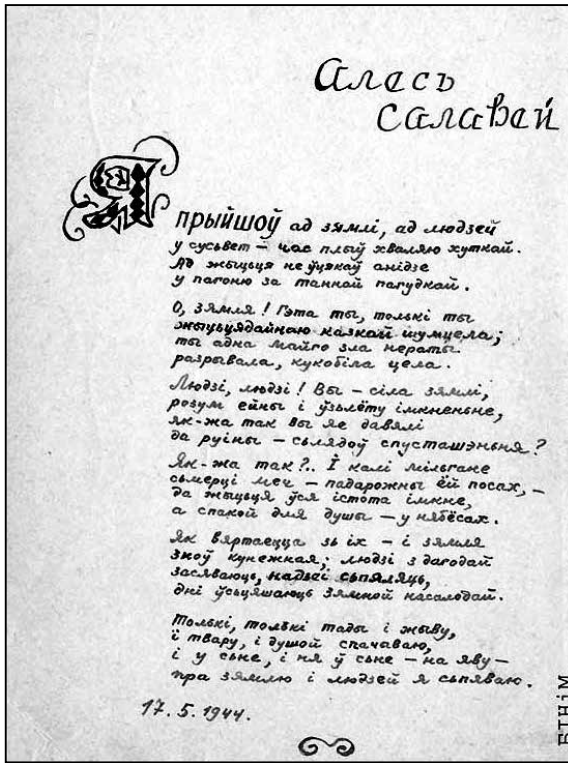 Алесь
Салавей
Я прыйшоў ад зямлі, ад людзей
у сусьвет – час плыў хваляю хуткай.
Ад жыцьця не ўцякаў анідзе
у пагоню за таннай пагудкай.
О, зямля! Гэта ты, толькі ты
жыцьцядайнаю казкай шумцела;
ты адна майго зла нераты
разрывала, кукобіла цела.
Людзі, людзі! Вы – сіла зямлі,
розум ейны і ўзьлёту імкненьне,
як-жа так вы яе давялі
да руіны – сьлядоў спусташэньня?
Як-жа так?.. І калі мільгане
сьмерці меч – падарожны ёй посах, –
да жыцьця ўся істота імкне,
а спакой для душы – у нябёсах.
Як вяртаецца зь іх – і зямля
зноў кунежная; людзі з дагодай
засяваюць, надзеі сьпяляць,
дні ўсьцяшаюць зямной насалодай.
Толькі, толькі тады і жыву,
і твару, і душой спачаваю,
і у сьне, і ня ў сьне – на яву –
пра зямлю і людзей я сьпяваю.
17. 5. 1944.
БІНіМ